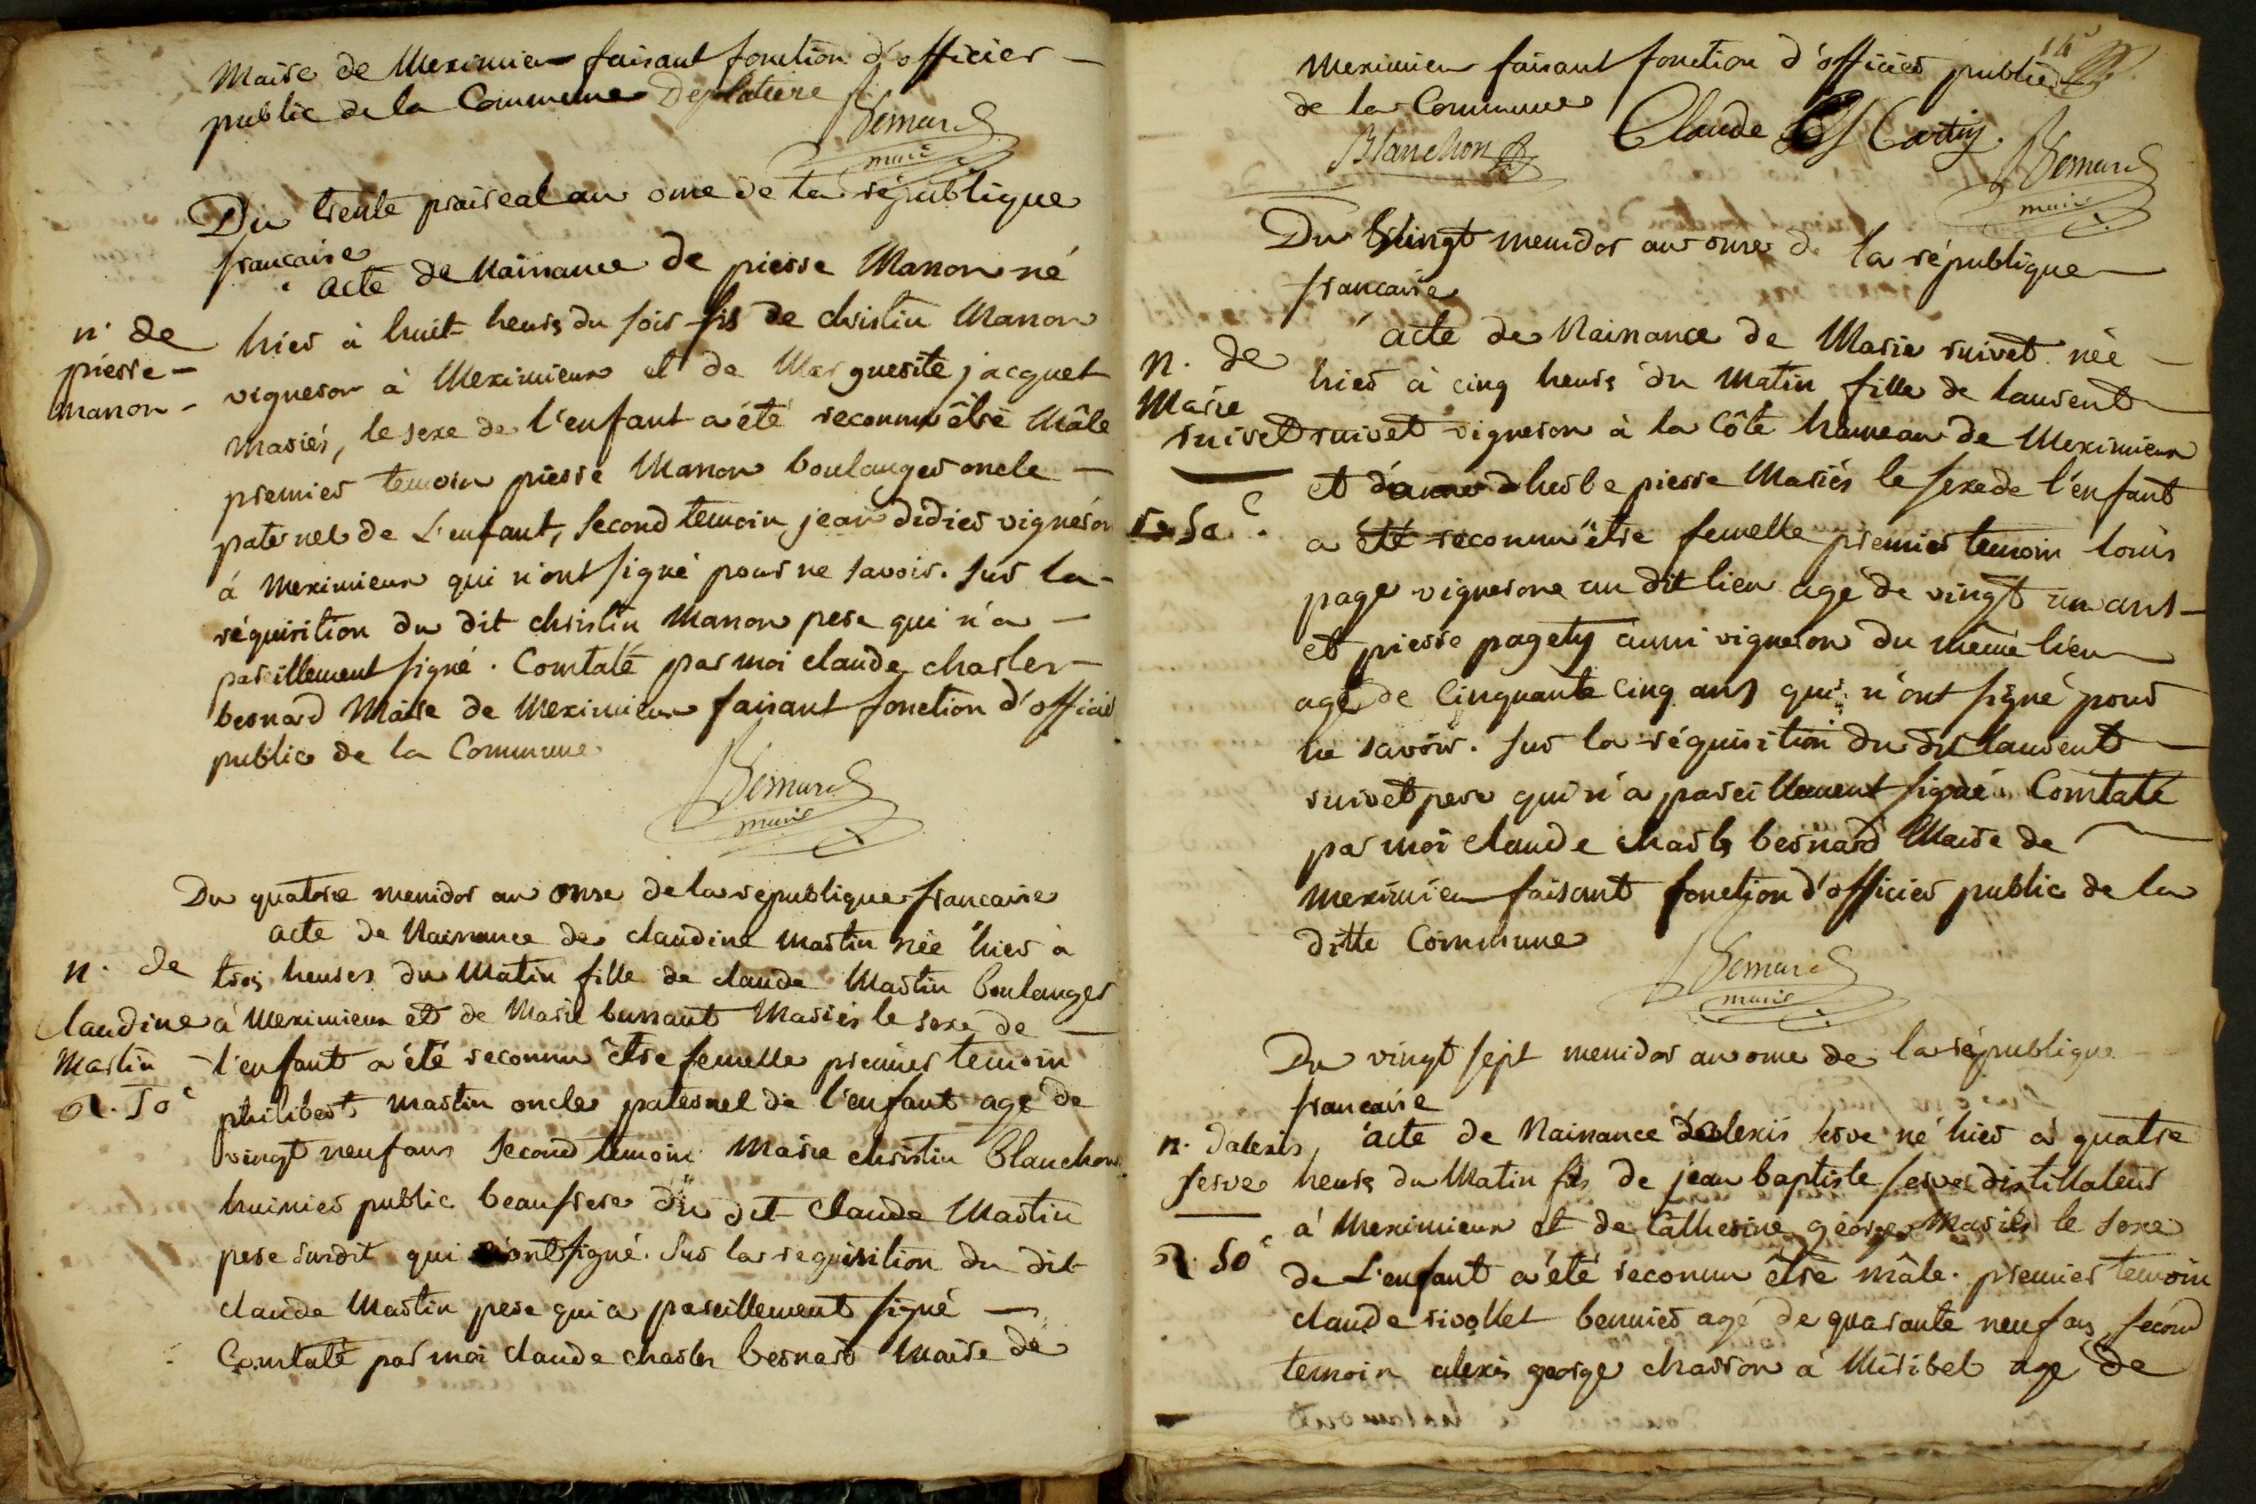 Maire de Meximieux faisant fonction d'officier -
public de la Commune Deplatiere
Bernard
maire
Du trente praireal an onze de la république
francaise
acte de Naissance de pierre Manon né
n. de
pierre -
manon -
hier à huit heures du soir fils de christin Manon
vigneron à Meximieux et de Marguerite jacquet
mariés, le sexe de l'enfant a été reconnu être Mâle
premier temoin pierre Manon boulanger oncle -
paternel de L'enfant, second temoin jean didier vigneron
à meximieux qui n'ont signé pour ne savoir. sur la -
réquisition du dit christin Manon pere qui n'a -
pareillement signé. Constaté par moi claude charles -
bernard Maire de Meximieux faisant fonction d'officier
public de la Commune
Bernard
maire
Du quatorze messidor an onze de la république francaise
acte de Naissance de claudine martin née hier à
n. de
claudine
Martin
R. 50 c
trois heures du Matin fille de claude Martin boulanger
à Meximieux et de Marie Mariés le sexe de -
l'enfant a été reconnu être femelle premier temoin
philibert martin oncle paternel de l'enfant agé de
vingt neuf ans second temoin Marie christin Blanchon
huissier public beaufrere du dit claude Martin
pere susdit qui ont signé. sur la requisition du dit
claude Martin pere qui a pareillement signé -
Constaté par moi claude charles bernard maire de
14
Meximieux faisant fonction d'officier public
de la Commune
Blanchon Claude Martin
Bernard
maire
Du vingt messidor an onze de la république -
francaise
acte de Naissance de Marie suivet née -
n. de
Marie
suivet
R. 50 c.
hier à cinq heures du Matin fille de laurent -
suivet vigneron à la Côte hameau de Meximieux
et d'anne dherbe pierre Mariés le sexe de l'enfant
a été reconnu être femelle premier temoin louis
page vigneron au dit lieu agé de vingt un ans -
et pierre pagety aussi vigneron du même lieu
agé de Cinquante Cinq ans qui n'ont signé pour
ne savoir. sur la réquisition du dit laurent -
suivet pere qui n'a pareillement signé Constaté
par moi claude charles bernard Maire de
meximieux faisant fonction d'officier public de la
ditte Commune
Bernard
maire
Du vingt sept messidor an onze de la république
francaise
n. d'alexis
serve
R. 50 c
acte de Naissance d'alexis serve né hier à quatre
heures du Matin fils de jean baptiste serve distillateur
à Meximieux et de Catherine george Mariés le sexe
de L'enfant a été reconnu être mâle. premier temoin
claude rivollet agé de quarante neuf ans second
temoin alexis george charron à Miribel agé de